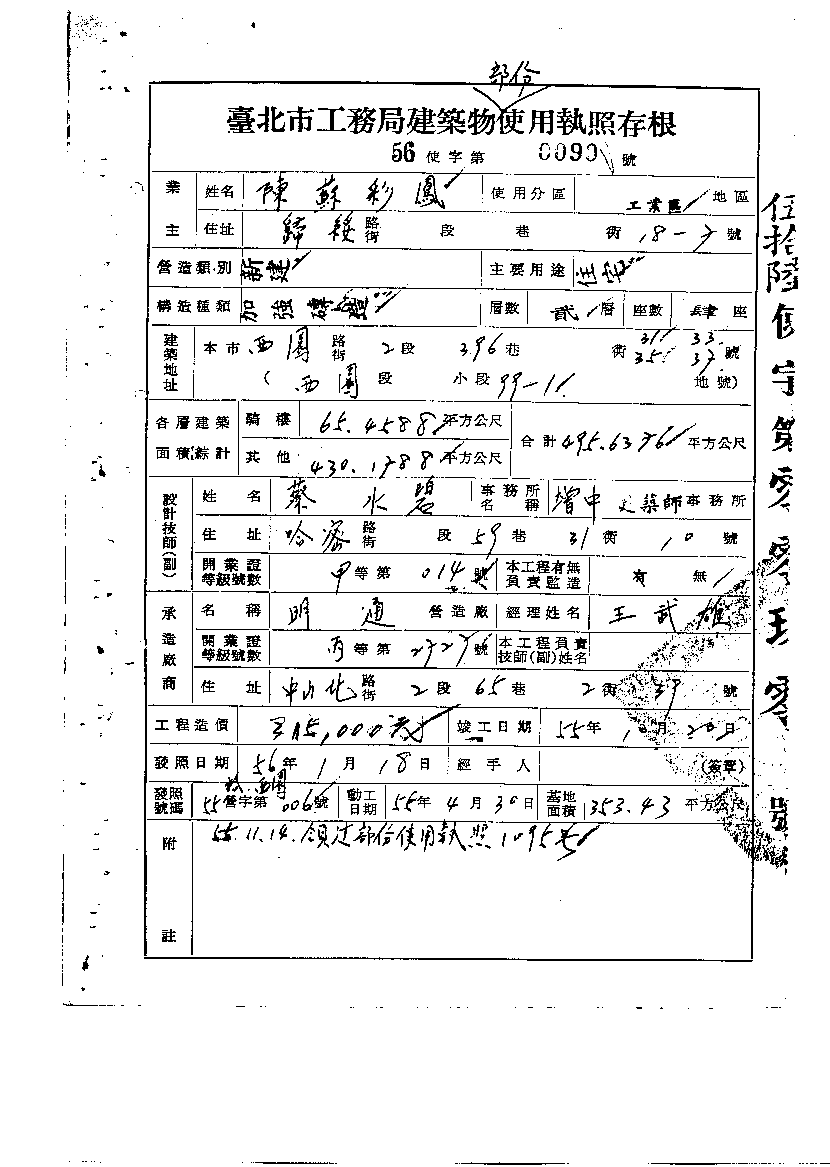 部份
臺北市工務局建築物使用執照存根
56 使字第 0090 號
業主 姓名 陳蘇彩鳳 使用分區 工業區 地區
住址 路街 段 巷 衖 18-7 號
營造類別 新建 主要用途 住宅
構造種類 加強磚造 層數 貳 層 座數 肆 座
建築地址 本市 西園 路街 2 段 396 巷 衖 31 33 35 37 號
( 西園 段 小段 99-11 地號)
各層建築面積綜計 騎樓 65.4588 平方公尺 合計 495.6376 平方公尺
其他 430.1788 平方公尺
設計技師(副) 姓名 蔡水碧 事務所名稱 增中 建築師事務所
住址 哈密 路街 段 59 巷 31 衖 10 號
開業證等級號數 甲 等第 014 號 本工程有無負責監造 有 無
承造廠商 名稱 明通 營造廠 經理姓名 王武雄
開業證等級號數 丙 等第 2727 號 本工程負責技師(副)姓名
住址 中山北 路街 2 段 65 巷 2 衖 39 號
工程造價 315,000元 竣工日期 55年10月20日
發照日期 56年1月18日 經手人 (簽章)
發照號碼 55營字第 006 號 動工日期 55年4月30日 基地面積 353.43 平方公尺
附註 55.11.14.領過部份使用執照1095號
伍拾陸使字第零零玖零號